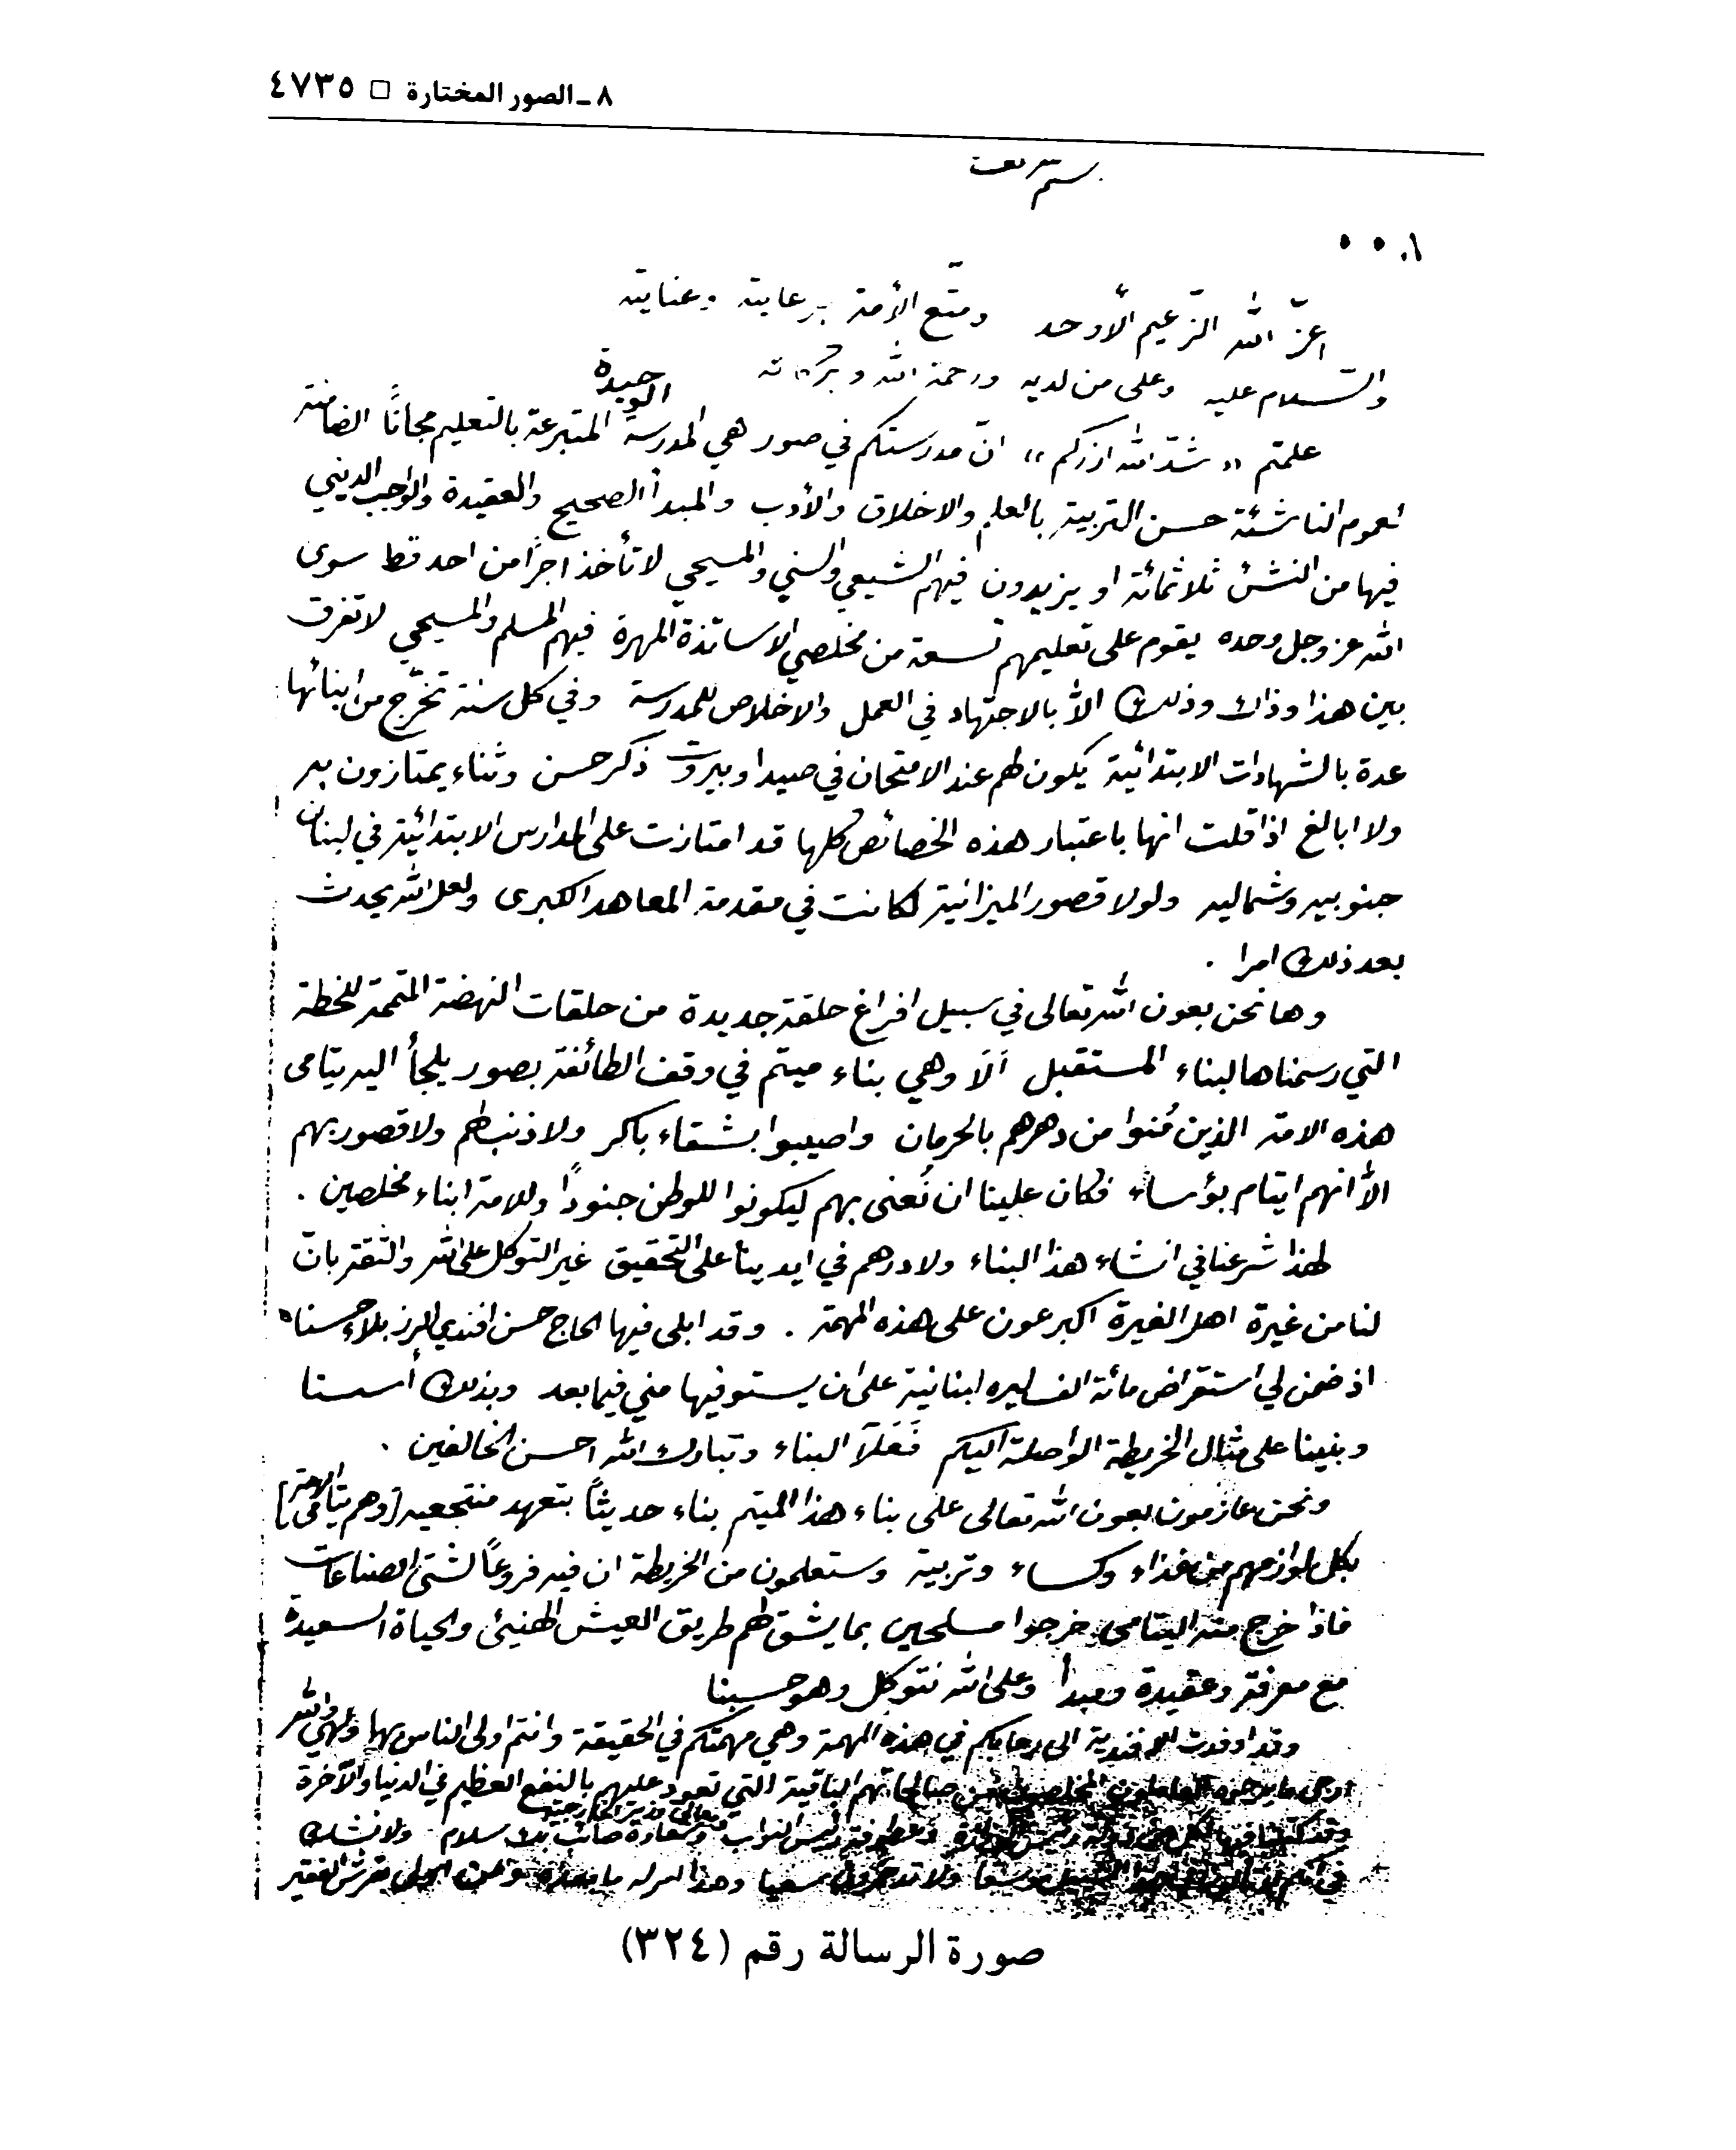 ٨ ـ الصور المختارة □ ٤٧٣٥
اعزّ الله الزّعيم الأوحد ومتّع الأمة برعايته وعنايته
والسّلام عليه وعلى من لديه ورحمة الله وبركاته
علمتم «شدّ الله ازركم» انّ مدرستكم في صور هي المدرسة الوحيدة المتبرعة بالتعليم مجانًا الضامنة
لعموم الناشئة حسن التربية بالعلم والاخلاق والأدب والمبدأ الصحيح والعقيدة والواجب الديني
فيها من النشئ ثلاثمائة او يزيدون فيهم الشيعي والسني والمسيحي لا تأخذ اجرًا من احد قط سوى
الله عز وجل وحده يقوم على تعليمهم تسعة من مخلصي الاساتذة المهرة فيهم المسلم والمسيحي لا تفرق
بين هذا وذاك وذلك الاّ بالاجتهاد في العمل والاخلاص للمدرسة وفي كل سنة تخرّج من ابنائها
عدة بالشهادات الابتدائية يكون لهم عند الامتحان في صيدا وبيروت ذكر حسن وثناء يمتازون به
ولا ابالغ اذا قلت انها باعتبار هذه الخصائص كلها قد امتازت على المدارس الابتدائية في لبنان
جنوبيه وشماليه ولولا قصور الميزانية لكانت في مقدمة المعاهد الكبرى ولعل الله يحدث
بعد ذلك امرا .
وها نحن بعون الله تعالى في سبيل افراغ حلقة جديدة من حلقات النهضة المتممة للخطة
التي رسمناها لبناء المستقبل ألا وهي بناء ميتم في وقف الطائفة بصور يلجأ اليه يتامى
هذه الامة الذين مُنوا من دهرهم بالحرمان واصيبوا بشقاء باكر ولا ذنب لهم ولا قصور بهم
الاّ انهم ايتام بؤساء فكان علينا ان نُعنى بهم ليكونوا للوطن جنودًا وللامة ابناء مخلصين .
لهذا شرعنا في انشاء هذا البناء ولا درهم في ايدينا على التحقيق غير التوكل على الله والثقة بانّ
لنا من غيرة اهل الغيرة اكبر عون على هذه المهمة . وقد ابلى فيها الحاج حسن افندي الرز بلاءً حسنا
اذ ضمن لي استقراض مائة الف ليره لبنانية على ان يستوفيها مني فيما بعد وبذلك أسسنا
وبنينا على مثال الخريطة الواصلة اليكم فَعَلاَ البناء وتبارك الله احسن الخالقين .
ونحن عازمون بعون الله تعالى على بناء هذا الميتم بناء حديثًا يتعهد منتجعيه [وهم يتامى الامة]
بكل لوازمهم من غذاء وكساء وتربية وستعلمون من الخريطة ان فيه فروعًا لشتى الصناعات
فاذا خرج منه اليتامى خرجوا مسلحين بما يشق لهم طريق العيش الهنيئ والحياة السعيدة
مع معرفة وعقيدة ومبدأ وعلى الله نتوكل وهو حسبنا
وقد اوفدت الافندية الى رحابكم في هذه المهمة وهي مهمتكم في الحقيقة وانتم اولى الناس بها
ارجى ما يرجوه العاملون المخلصون من صالحاتهم الباقية التي تعود عليهم بالنفع العظيم في الدنيا والآخرة
رئيس النواب ومعالي وزير الخارجية وسعادة صائب بك سلام ولا نشك
صورة الرسالة رقم (٣٢٤)